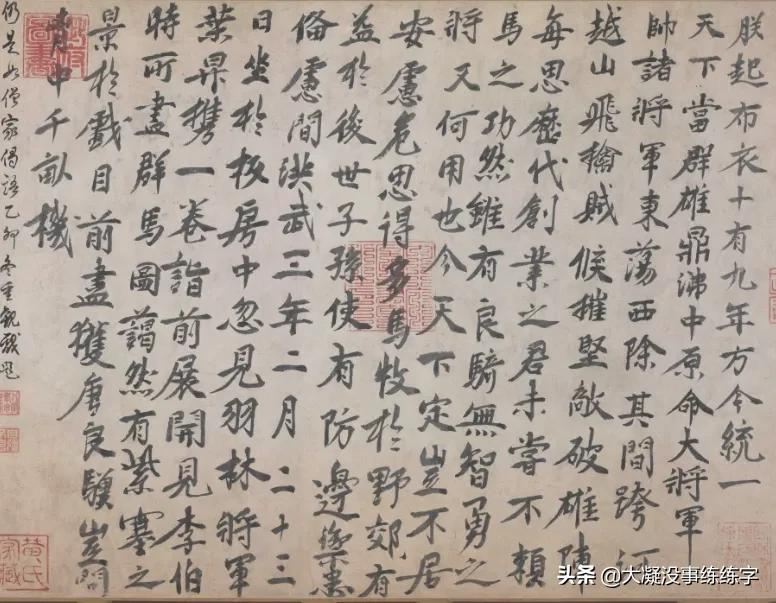 朕起布衣十有九年方今統一
天下當群雄鼎沸中原命大將軍
帥諸將軍東蕩西除其間跨河
越山飛擒賊候摧堅敵破雄陣
每思歷代創業之君未嘗不賴
馬之功然雖有良騎無智勇之
將又何用也今天下定豈不居
安慮危思得多馬牧於野郊有
益於後世子孫使有防邊禦患
備慮間洪武三年二月二十三
日坐於板房中忽見羽林將軍
葉昇攜一卷詣前展開見李伯
時所畫群馬圖藹然有紫塞之
景於戲目前盡獲唐良驥豈問
胸中千畝機
仍是如僧家偈語乙卯冬重觀戲題
黃氏家藏
头条 @大凝没事练练字